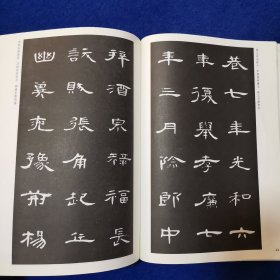 巷七年光和六
年復舉孝廉七
年三月除郎中
拜酒泉祿福長
訞賊張角起兵
幽冀兗豫荊楊